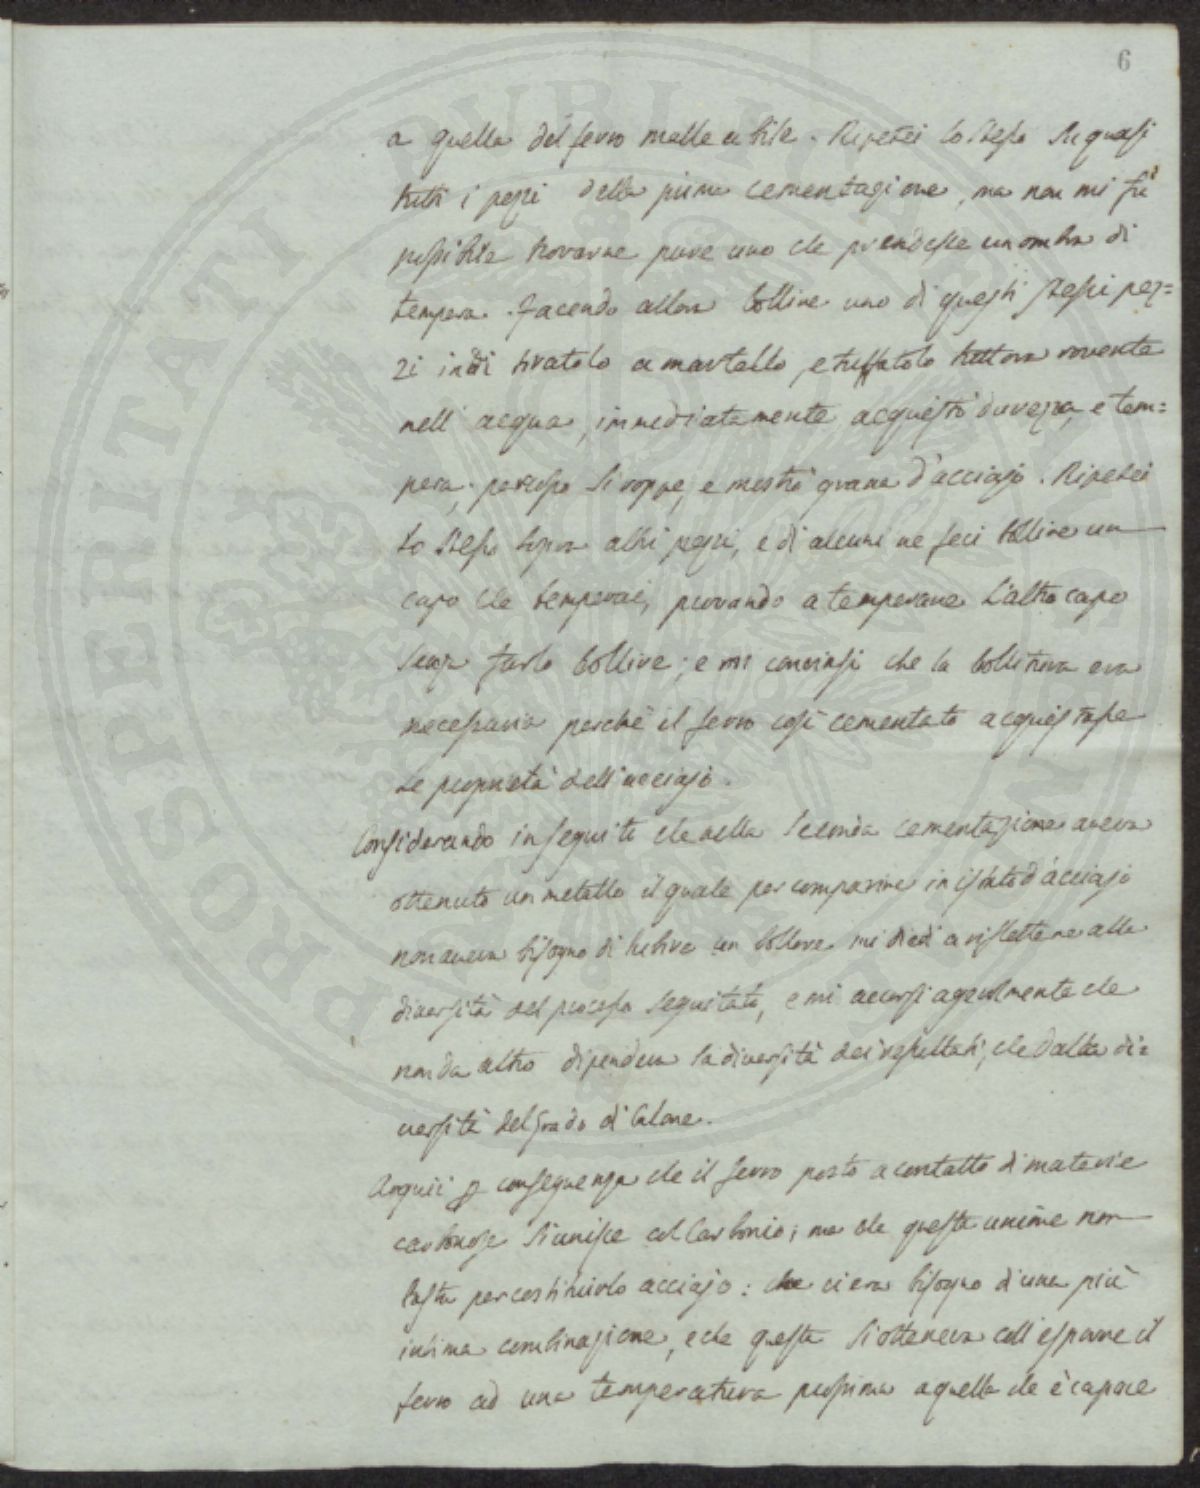 6
a quella del ferro malleabile. Ripetei lo stesso su quasi
tutti i pezzi della prima cementazione, ma non mi fù
possibile trovarne pure uno che prendesse un ombra di
tempera. Facendo allora bollire uno di questi stessi pez=
zi indi tiratolo a martello, e tuffatolo tuttora rovente
nell' acqua, immediatamente acquistò durezza, e tem=
pera, percosso si roppe, e mostrò grana d'acciajo. Ripetei
lo stesso sopra altri pezzi, e di alcuni ne feci bollire un
capo che temperai, provando a temperarne l'altro capo
senza farlo bollire; e mi convinsi che la bollitura era
necessaria perchè il ferro così cementato acquistasse
le proprietà dell'acciajo.
Considerando in seguito che nella seconda cementazione aveva
ottenuto un metallo il quale per comparire in istato d'acciajo
non aveva bisogno di subire un bollore mi diedi a riflettere alla
diversità del processo seguitato, e mi accorsi agevolmente che
non da altro dipendeva la diversità dei resultati, che dalla di=
versità del grado di Calore.
Arguii p conseguenza che il ferro posto a contatto di materie
carbonose si unisce col Carbonio; ma che questa unione non
basta per costituirlo acciajo: che ci era bisogno d'una più
intima combinazione, e che questa si otteneva coll'esporre il
ferro ad una temperatura prossima a quella che è capace
PROSPERITATI PUBLICAE